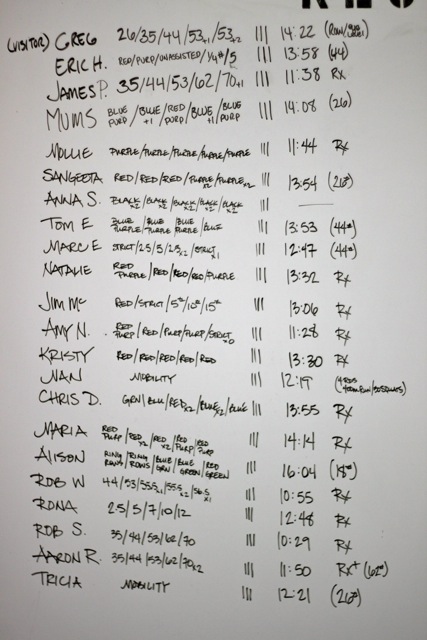 (VISITOR) GREG 26/35/44/53+1/53+2 III 14:22 (ROW/
ERIC H. RED/PURP/UNASSISTED/ /5 III 13:58 (44)
JAMES P. 35/44/53/62/70+1 III 11:38 Rx
MUMS BLUE PURP/BLUE+1/RED PURP/BLUE+1/BLUE PURP III 14:08 (26)
MOLLIE PURPLE/PURPLE/PURPLE/PURPLE/PURPLE III 11:44 Rx
SANGEETA RED/RED/RED/PURPLE/PURPLEx2 III 13:54 (26#)
ANNA S. BLACKx2/BLACKx2/BLACKx2/BLACKx2/BLACKx2 III —
TOM E BLUE PURPLE/BLUE PURPLE/BLUE PURPLE/BLUE III 13:53 (44#)
MARC E STRICT/2.5/5/25x2/STRICTx1 III 12:47 (44#)
NATALIE RED PURPLE/RED/RED/RED/PURPLE III 13:32 Rx
JIM Mc RED/STRICT/5#/10#/15# III 13:06 Rx
AMY N. RED PURP/RED/PURP/PURP/STRICTx0 III 11:28 Rx
KRISTY RED/RED/RED/RED/RED III 13:30 Rx
NAN MOBILITY III 12:19 (4 RDS 400m RUN/50 SQUATS)
CHRIS D. GRN/BLU/REDx2/BLUEx2/BLUE III 13:55 Rx
MARIA RED PURP/REDx2/REDx2/RED PURP/RED PURP III 14:14 Rx
ALISON RING ROWS/RING ROWS/BLUE GRN/BLUE GREEN/RED GREEN III 16:04 (18#)
ROB W 44/53/55.5x1/55.5x2/56.5x1 III 10:55 Rx
RONA 2.5/5/7/10/12 III 12:48 Rx
ROB S. 35/44/53/62/70 III 10:29 Rx
AARON R. 35/44/53/62/70x2 III 11:50 Rx+ (62#)
TRICIA MOBILITY III 12:21 (26#)